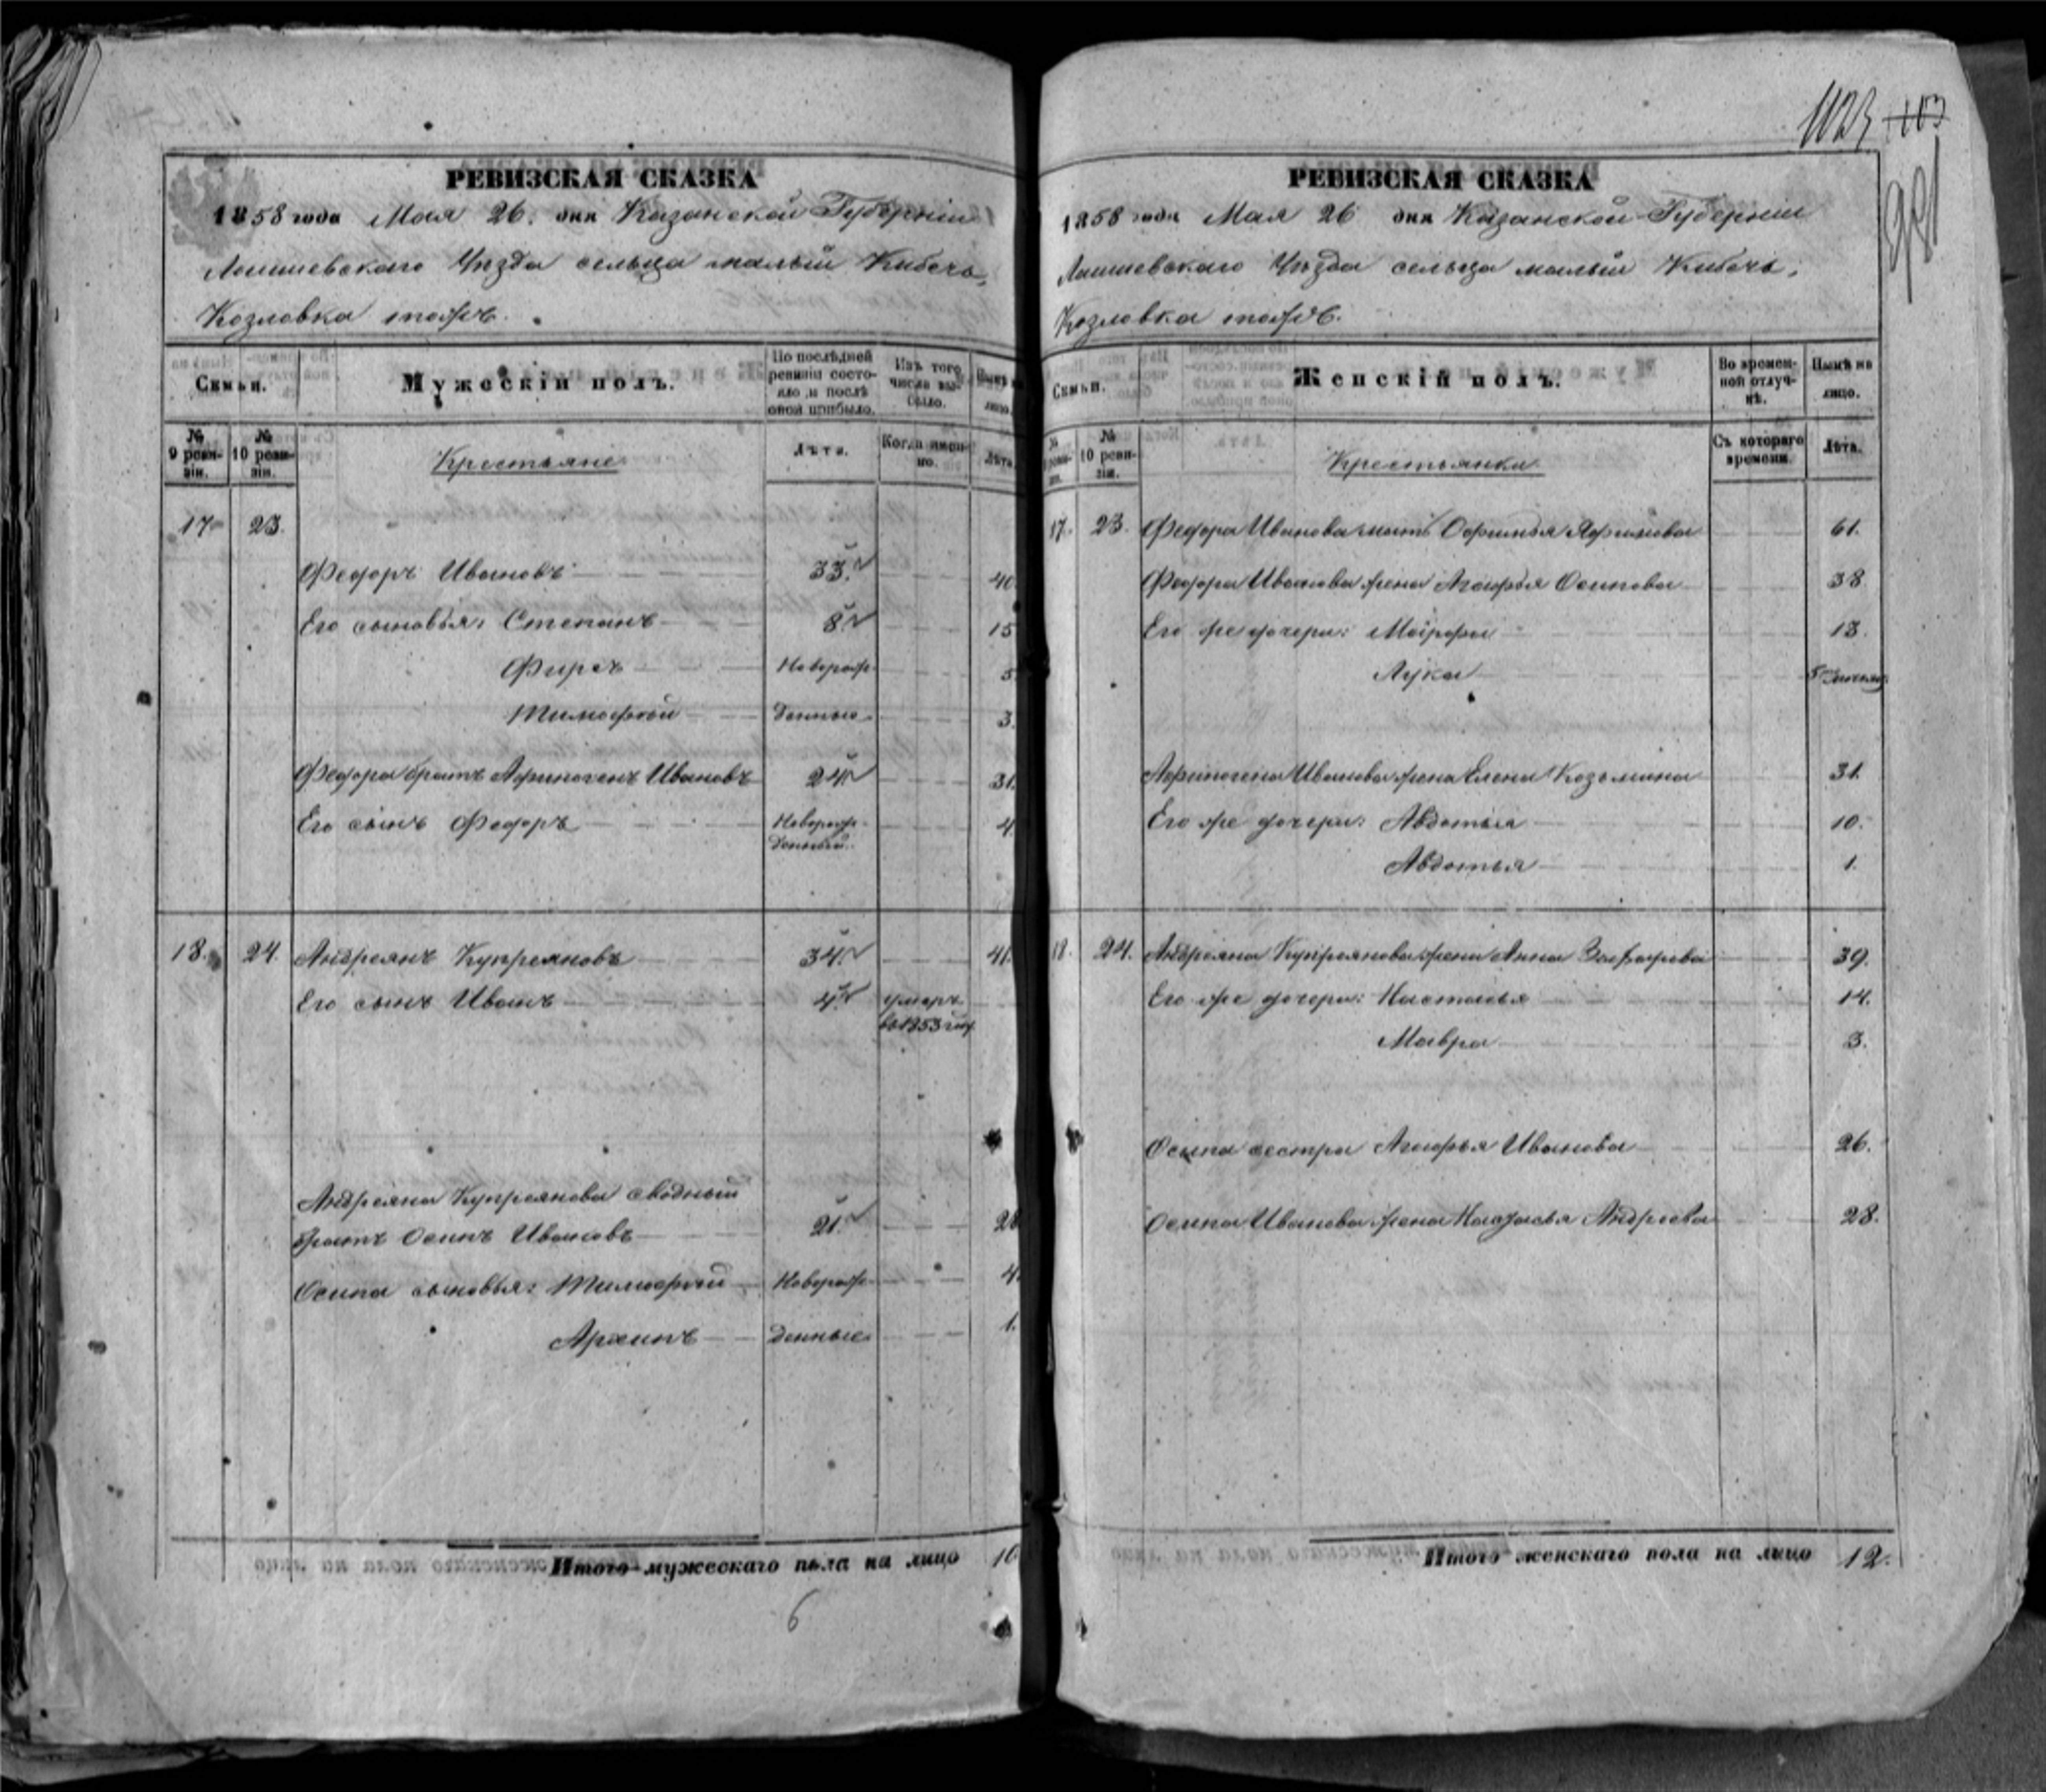 1123 103
981
РЕВИЗСКАЯ СКАЗКА
1858 года Мая 26. дня Казанской Губерніи
Лаишевскаго Уѣзда сельца малый Кибечь,
Козловка тожъ.
Семьи.
Мужескій полъ.
По послѣдней ревизіи состояло и послѣ оной прибыло.
Изъ того числа выбыло.
Нынѣ на лицо.
№ 9 ревизіи.
№ 10 ревизіи.
Крестьяне
Лѣта.
Когда именно.
Лѣта.
17 23.
Федоръ Ивановъ 33. 40
Его сыновья: Степанъ 8. 15
Фирсъ Новорож- 5.
Тимофей денные 3.
Федора братъ Афиногенъ Ивановъ 24. 31.
Его сынъ Федоръ Новорож- 4
денный.
18. 24. Андреянъ Купреяновъ 34. 41.
Его сынъ Иванъ 4. умеръ
въ 1853 году
Андреяна Купреянова сводный
братъ Осипъ Ивановъ 21. 28
Осипа сыновья: Тимофей Новорож- 4.
Архипъ денные 1.
Итого мужескаго пола на лицо 10
6
РЕВИЗСКАЯ СКАЗКА
1858 года Мая 26 дня Казанской Губерніи
Лаишевскаго Уѣзда сельца малый Кибечь,
Козловка тожъ.
Семьи.
Женскій полъ.
Во временной отлучкѣ.
Нынѣ на лицо.
№ 10 ревизіи.
Крестьянки
Съ котораго времени.
Лѣта.
17. 23. Федора Иванова мать Офимья 61.
Федора Иванова жена Агафья Осипова 38
Его же дочери: Марфа 13.
Лукья
Афиногена Иванова жена Елена Козьмина 31.
Его же дочери: Авдотья 10.
Авдотья 1.
18. 24. Андреяна Купреянова жена Анна 39.
Его же дочери: Настасья 14.
Мавра 3.
Осипа сестра Агафья Иванова 26.
Осипа Иванова жена Настасья Андреева 28.
Итого женскаго пола на лицо 12.